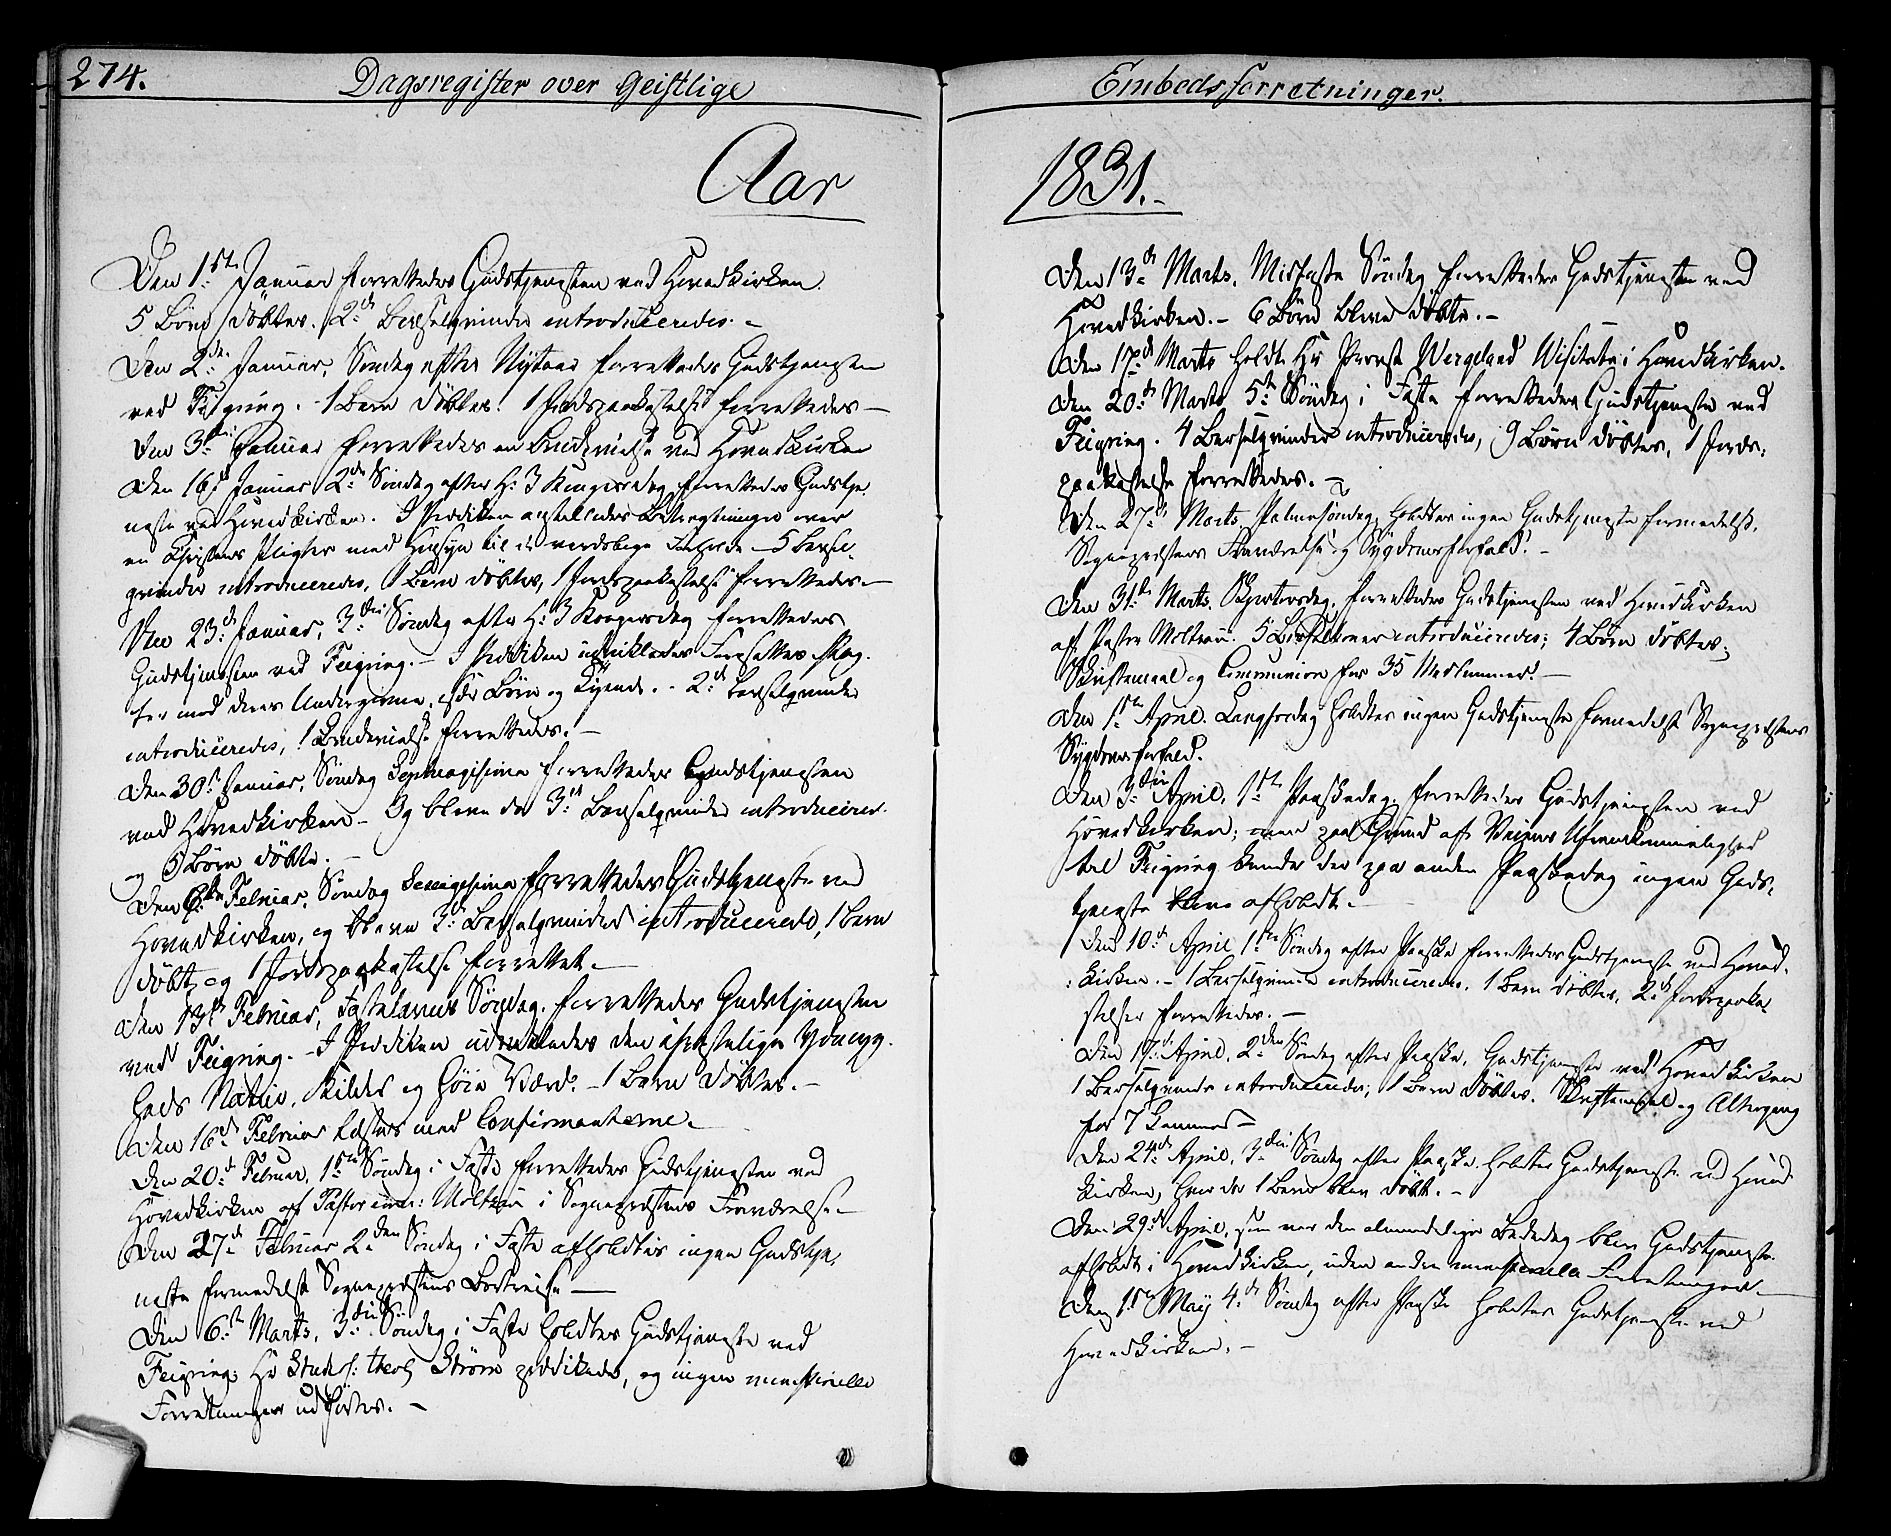 274.
Dagsregister over Geistlige
Embedsforretninger.
Aar
1831.-
Den 1ste Januar forrettedes Gudstjenesten ved Hovedkirken.
5 Børn døbtes. 2de Barselqvinder introduceredes. -
Den 2den Januar, Søndag efter Nytaar forrettedes Gudstjenesten
ved Feigring. - 1 Barn døbtes. 1 Jordspaakastelse forrettedes -
Den 3die Januar forrettedes en Brudevielse ved Hovedkirken
Den 16de Januar 2den Søndag efter H: 3 Kongersdag forrettedes Gudstje
neste ved Hovedkirken. I Prædiken anstilledes Betragtninger over
en Christens Pligter med Hensyn til de verdslige - 5 Barsel
qvinder introduceredes, 1 Barn døbtes, 1 Jordspaakastelse forrettedes. -
Den 23de Januar, 3die Søndag efter H: 3 Kongersdag forrettedes
Gudstjenesten ved Feigring. - I Prædiken udvikledes Foresattes Plig
ter mod deres Undergivne, Børn og Tyende. - 2de Barselqvinder
introduceredes, 1 Brudevielse forrettedes. -
Den 30te Januar, Søndag Septuagesima forrettedes Gudstjenesten
ved Hovedkirken - Og bleve der 3de Barselqvinder introducered
og 5 Børn døbte. -
Den 6te Februar, Søndag Sexagesima forrettedes Gudstjeneste ved
Hovedkirken, og bleve 3de Barselqvinder introducerede, 1 Barn
døbt, og 1 Jordspaakastelse forrettet. -
Den 13de Februar, Fastelavns Søndag, forrettedes Gudstjenesten
ved Feigring. - I Prædiken udvikledes den christelige Ydmyg
heds Natur, Kilder og høie Værd. - 1 Barn døbtes. -
Den 16de Februar læstes med Confirmanterne. -
Den 20de Februar, 1ste Søndag i Faste forrettedes Gudstjenesten ved
Hovedkirken af Pastor Moltzau i Sognepræstens Fraværelse -
Den 27de Februar 2den Søndag i Faste afholdtes ingen Gudstje,
neste formedelst Sognepræstens Bortreise -
Den 6te Marts, 3die Søndag i Faste holdtes Gudstjeneste ved
Feigring; Hr Studs: theol Strøm prædikede, og ingen ministerielle
Forretninger udførtes. -
Den 13de Marts, Midfaste Søndag forrettedes Gudstjenesten ved
Hovedkirken. - 6 Børn bleve døbte. -
Den 17de Marts holdt Hr Provst Wergeland Visitats i Hovedkirken.
Den 20de Marts 5te Søndag i Faste forrettedes Gudstjeneste ved
Feigring. 4 Barselqvinder introduceredes, 9 Børn døbtes, 1 Jords,
paakastelse forrettedes. -
Den 27de Marts, Palmesøndag, holdtes ingen Gudstjeneste formedelst
Sognepræstens Fraværelse og Sygdomsforfald. -
Den 31te Marts, Skjertorsdag, forrettedes Gudstjenesten ved Hovedkirken
af Pastor Moltzau. 5 introduceredes; 4 Børn døbtes;
Skriftemaal og Communion for 35 Medlemmer. -
Den 1ste April. Langfredag holdtes ingen Gudstjeneste formedelst Sognepræstens
Sygdomsforfald.
Den 3die April, 1ste Paaskedag, forrettedes Gudstjenesten ved
Hovedkirken; men paa Grund af Veiens Ufremkommelighed
til Feigring kunde der paa anden Paaskedag ingen Guds,
tjeneste blive afholdt. -
Den 10de April 1ste Søndag efter Paaske forrettedes Gudstjeneste ved Hoved,
kirken. - 1 Barselqvinde introduceredes, 1 Barn døbtes, 2de Jordspaaka
stelser forrettedes. -
Den 17de April, 2den Søndag efter Paaske, Gudstjeneste ved Hovedkirken
1 Barselqvinde introduceredes, 1 Barn døbtes. Skriftemaal og Altergang
for 7 Lemmer -
Den 24de April, 3die Søndag efter Paaske holdtes Gudstjeneste ved Hoved
kirken, hvor der 1 Barn blev døbt. -
Den 29de April, som var den almindelige Bededag blev Gudstjeneste
afholdt i Hovedkirken, uden andre ministerielle Forretninger. -
Den 1ste May 4de Søndag efter Paaske holdtes Gudstjeneste ved
Hovedkirken. -